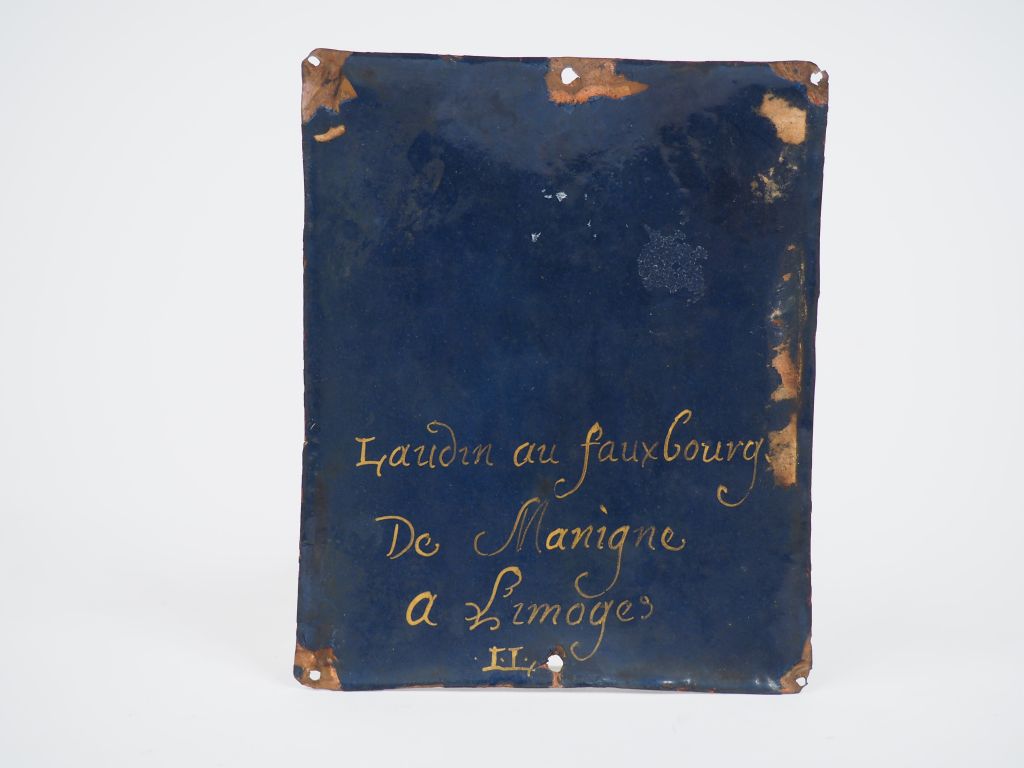 Laudin au fauxbourg
De Manigne
a Limoges
I.L.